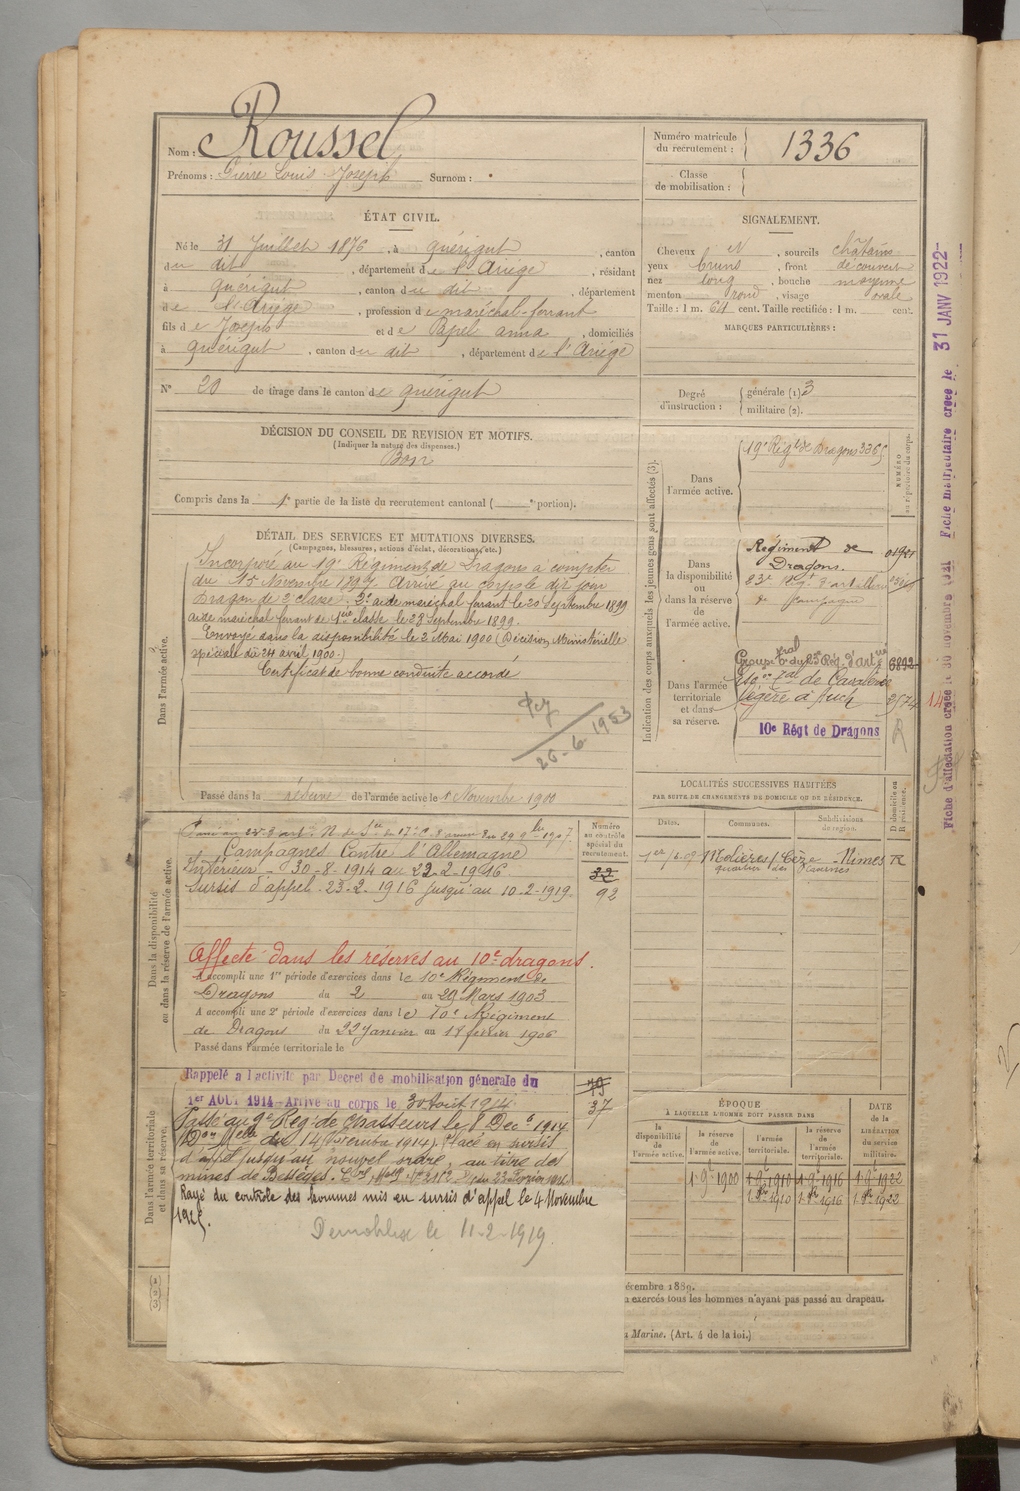 Nom : Roussel
Prénoms : Pierre Louis Joseph Surnom :
Numéro matricule du recrutement : 1336
Classe de mobilisation :
ÉTAT CIVIL.
Né le 31 Juillet 1876, à Quérigut, canton
du dit, département de l'Ariège, résidant
à Quérigut, canton du dit, département
de l'Ariège, profession de maréchal-ferrant
fils de Joseph et de Papel anna, domiciliés
à Quérigut, canton du dit, département de l'Ariège
N° 20 de tirage dans le canton de Quérigut
SIGNALEMENT.
Cheveux et, sourcils châtains
yeux bruns, front découvert
nez long, bouche moyenne
menton rond, visage ovale
Taille : 1 m. 64 cent. Taille rectifiée : 1 m. cent.
MARQUES PARTICULIÈRES :
Degré d'instruction : générale (1) 3
militaire (2).
DÉCISION DU CONSEIL DE REVISION ET MOTIFS.
(Indiquer la nature des dispenses.)
Bon
Compris dans la 1e partie de la liste du recrutement cantonal ( e portion).
DÉTAIL DES SERVICES ET MUTATIONS DIVERSES.
(Campagnes, blessures, actions d'éclat, décorations, etc.)
Dans l'armée active.
Incorporé au 19e Régiment de Dragons à compter
du 15 Novembre 1897. Arrivé au corps le dit jour
Dragon de 2e classe. 2e aide maréchal ferrant le 20 Septembre 1899
aide maréchal ferrant de 1ère classe le 28 Septembre 1899.
Envoyé dans la disponibilité le 2 Mai 1900 (Décision Ministérielle
spéciale du 24 avril 1900.)
Certificat de bonne conduite accordé
26-6-1953
Passé dans la réserve de l'armée active le 1 Novembre 1900
Indication des corps auxquels les jeunes gens sont affectés (3).
NUMÉRO au répertoire du corps.
Dans l'armée active.
19e Régt de Dragons 3365
Dans la disponibilité ou dans la réserve de l'armée active.
Régiment de Dragons. 01901
de campagne
Dans l'armée territoriale et dans sa réserve.
6892
Esqon Tal de Cavalerie
légère à Auch 2574
10e Régt de Dragons
Fiche d'affectation créée le 30 novembre
Fiche matriculaire créée le 31 JANV 1922
Dans la disponibilité ou dans la réserve de l'armée active.
Numéro au contrôle spécial du recrutement.
Campagnes Contre l'Allemagne
Intérieur - 30-8-1914 au 22-2-1916
Sursis d'appel 23-2-1916 jusqu'au 10-2-1919.
32
92
Affecté dans les réserves au 10e dragons.
A accompli une 1re période d'exercices dans le 10e Régiment de
Dragons du 2 au 29 Mars 1903
A accompli une 2e période d'exercices dans le 10e Régiment
de Dragons du 22 Janvier au 18 février 1906
Passé dans l'armée territoriale le
LOCALITÉS SUCCESSIVES HABITÉES
PAR SUITE DE CHANGEMENTS DE DOMICILE OU DE RÉSIDENCE.
Dates. Communes. Subdivisions de région. D domicile ou R résidence.
Molières s/ Cèze Nîmes R
quartier des
Dans l'armée territoriale et dans sa réserve.
Rappelé à l'activité par Decret de mobilisation générale du
1er AOUT 1914 Arrivé au corps le 30 Août 1914
Passé au 9e Reg. de Chasseurs le 8 Déc. 1914
Placé en sursis
d'appel jusqu'au nouvel ordre, au titre des
mines de Bessèges.
Rayé du contrôle des hommes mis en sursis d'appel le 4 Novembre
Démobilisé le 11-2-1919.
19
37
ÉPOQUE
À LAQUELLE L'HOMME DOIT PASSER DANS
la disponibilité de l'armée active. la réserve de l'armée active. l'armée territoriale. la réserve de l'armée territoriale.
DATE de la LIBÉRATION du service militaire.
1-9e 1900 1-9e 1910 1-9e 1916 1-9e 1922
1-8bre 1910 1-8bre 1916 1-8bre 1922
écembre 1889.
exercés tous les hommes n'ayant pas passé au drapeau.
Marine. (Art. 4 de la loi.)